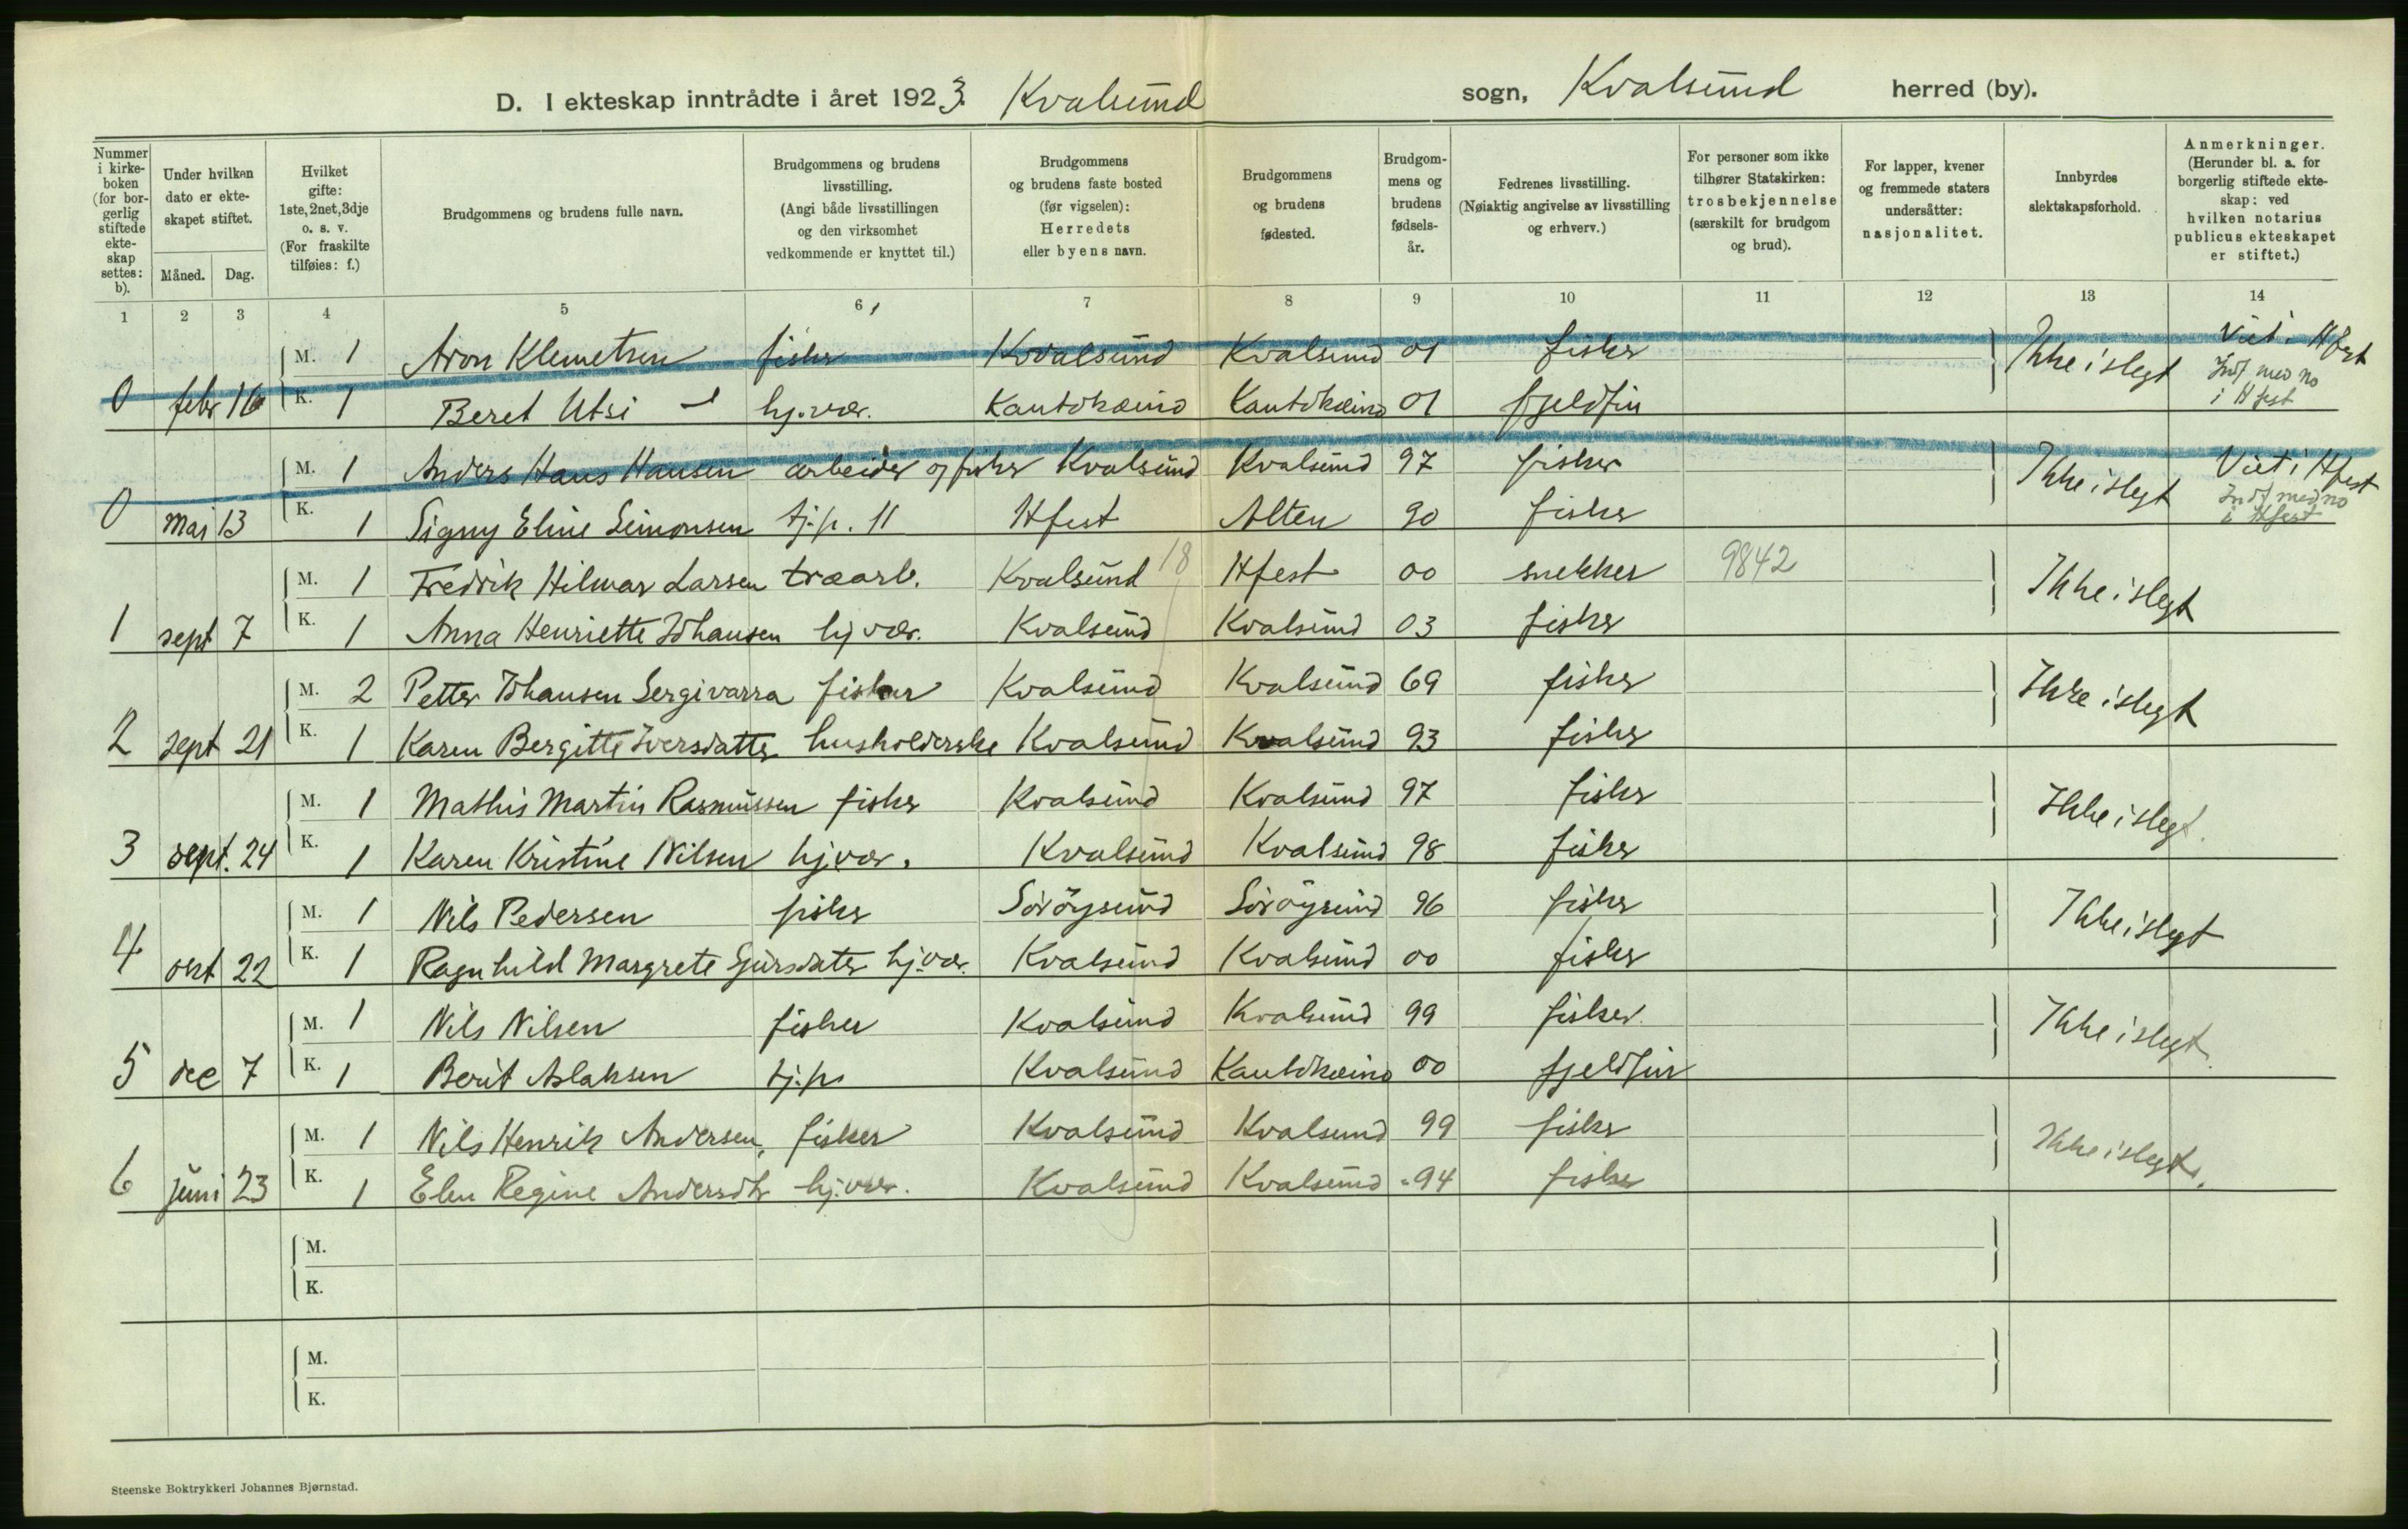 D. I ekteskap inntrådte i året 1923. Kvalsund sogn, Kvalsund herred (by).
Nummer i kirke-boken (for bor-gerlig stiftede ekte-skap settes: b).
Under hvilken dato er ekte-skapet stiftet.
Måned. Dag.
Hvilket gifte: 1ste, 2net, 3dje o. s. v. (For fraskilte tilføies: f.)
Brudgommens og brudens fulle navn.
Brudgommens og brudens livsstilling. (Angi både livsstillingen og den virksomhet vedkommende er knyttet til.)
Brudgommens og brudens faste bosted (før vigselen): Herredets eller byens navn.
Brudgommens og brudens fødested.
Brudgom-mens og brudens fødsels-år.
Fedrenes livsstilling. (Nøiaktig angivelse av livsstilling og erhverv.)
For personer som ikke tilhører Statskirken: trosbekjennelse (særskilt for brudgom og brud).
For lapper, kvener og fremmede staters undersåtter: nasjonalitet.
Innbyrdes slektskapsforhold.
Anmerkninger. (Herunder bl. a. for borgerlig stiftede ekte-skap: ved hvilken notarius publicus ekteskapet er stiftet.)
1 2 3 4 5 6 7 8 9 10 11 12 13 14
M. 1 Aron Klemetsen fisker Kvalsund Kvalsund 01 fisker Ikke i slegt Viet i Hfest
Indf med no
i Hfest
0 febr 16 K. 1 Beret Utsi hj.vær. Kautokeino Kautokeino 01 fjeldfin
M. 1 Anders Hans Hansen arbeider og fisker Kvalsund Kvalsund 97 fisker Ikke i slegt Viet i Hfest
Indf med no
i Hfest
0 mai 13 K. 1 Signy Eline Simonsen tj.p. 11 Hfest Alten 90 fisker
M. 1 Fredrik Hilmar Larsen træarb. Kvalsund 18 Hfest 00 snekker 9842 Ikke i slegt
1 sept 7 K. 1 Anna Henriette Johansen hj vær. Kvalsund Kvalsund 03 fisker
M. 2 Petter Johansen Sergivarra fisker Kvalsund Kvalsund 69 fisker Ikke i slegt
2 sept 21 K. 1 Karen Bergitte Iversdatter husholderske Kvalsund Kvalsund 93 fisker
M. 1 Mathis Martin Rasmussen fisker Kvalsund Kvalsund 97 fisker Ikke i slegt.
3 sept. 24 K. 1 Karen Kristine Nilsen hj.vær. Kvalsund Kvalsund 98 fisker
M. 1 Nils Pedersen fisker Sørøysund Sørøysund 96 fisker Ikke i slegt
4 okt 22 K. 1 Ragnhild Margrete Sjursdatter hj.vær. Kvalsund Kvalsund 00 fisker
M. 1 Nils Nilsen fisker Kvalsund Kvalsund 99 fisker. Ikke i slegt.
5 dec 7 K. 1 Berit Aslaksen tj.p. Kvalsund Kautokeino 00 fjeldfin
M. 1 Nils Henrik Andersen, fisker Kvalsund Kvalsund 99 fisker Ikke i slegt.
6 juni 23 K. 1 Elen Regine Andersdtr hj.vær. Kvalsund Kvalsund 94 fisker
M.
K.
M.
K.
Steenske Boktrykkeri Johannes Bjørnstad.